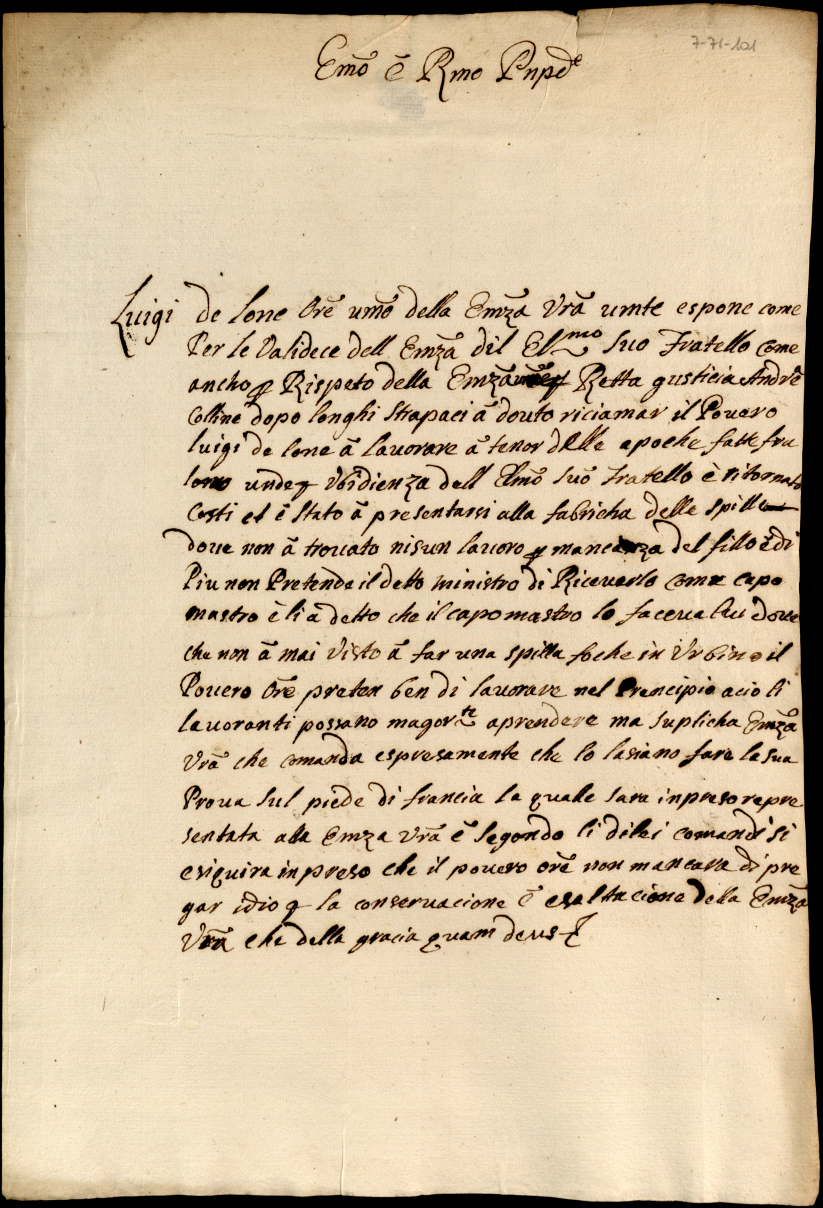 7-71-101
Emõ ẽ Rmo Pnpe
Luigi de lone Orẽ umõ della Emz̃a Vrã umte espone come
Per le Validece dell Emz̃a dil El^mo Suo Fratello come
ancho ꝑ Rispeto della Emz̃a Retta gusticia Andrẽ
Colline dopo longhi Strapaci ã douto riciamar il Pouero
luigi de lone ã lauorare ã tenor delle apoche fatte fra
loro unde ꝑ Vbidienza dell Elmõ Suõ Fratello è ritornato
Costi et ẽ stato ã presentarsi alla fabricha delle spille
doue non ã trouato nisun lauoro ꝑ mancanza del fillo ẽ di
Piu non Pretende il detto ministro di Riceuerlo come capo
mastro ẽ li ã detto che il capo mastro lo faceua lui doue
che non ã mai Visto ã far una spilla fo che in Vrbino il
Pouero Orẽ preten ben di lauorare nel Principio acio li
lauoranti possano magor^te aprendere ma Suplicha Emz̃a
Vrã che comanda espresamente che lo lasiano fare la sua
Proua Sul piede di francia la qualle sara inpreso repre
sentata alla Emza Vrã ẽ Segondo li di lei comandi si
esiquira inpreso che il pouero orẽ non mancara di pre
gar idio ꝑ la conseruacione ẽ esaltacione della Emz̃a
Vrã che della gracia quam deus